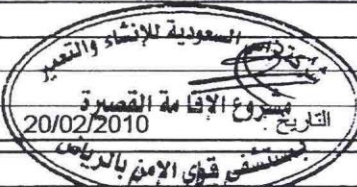 السعودية للإنشاء والتعمير
مشروع الاقامة القصيرة
التاريخ : 20/02/2010
بمستشفى قوى الامن بالرياض